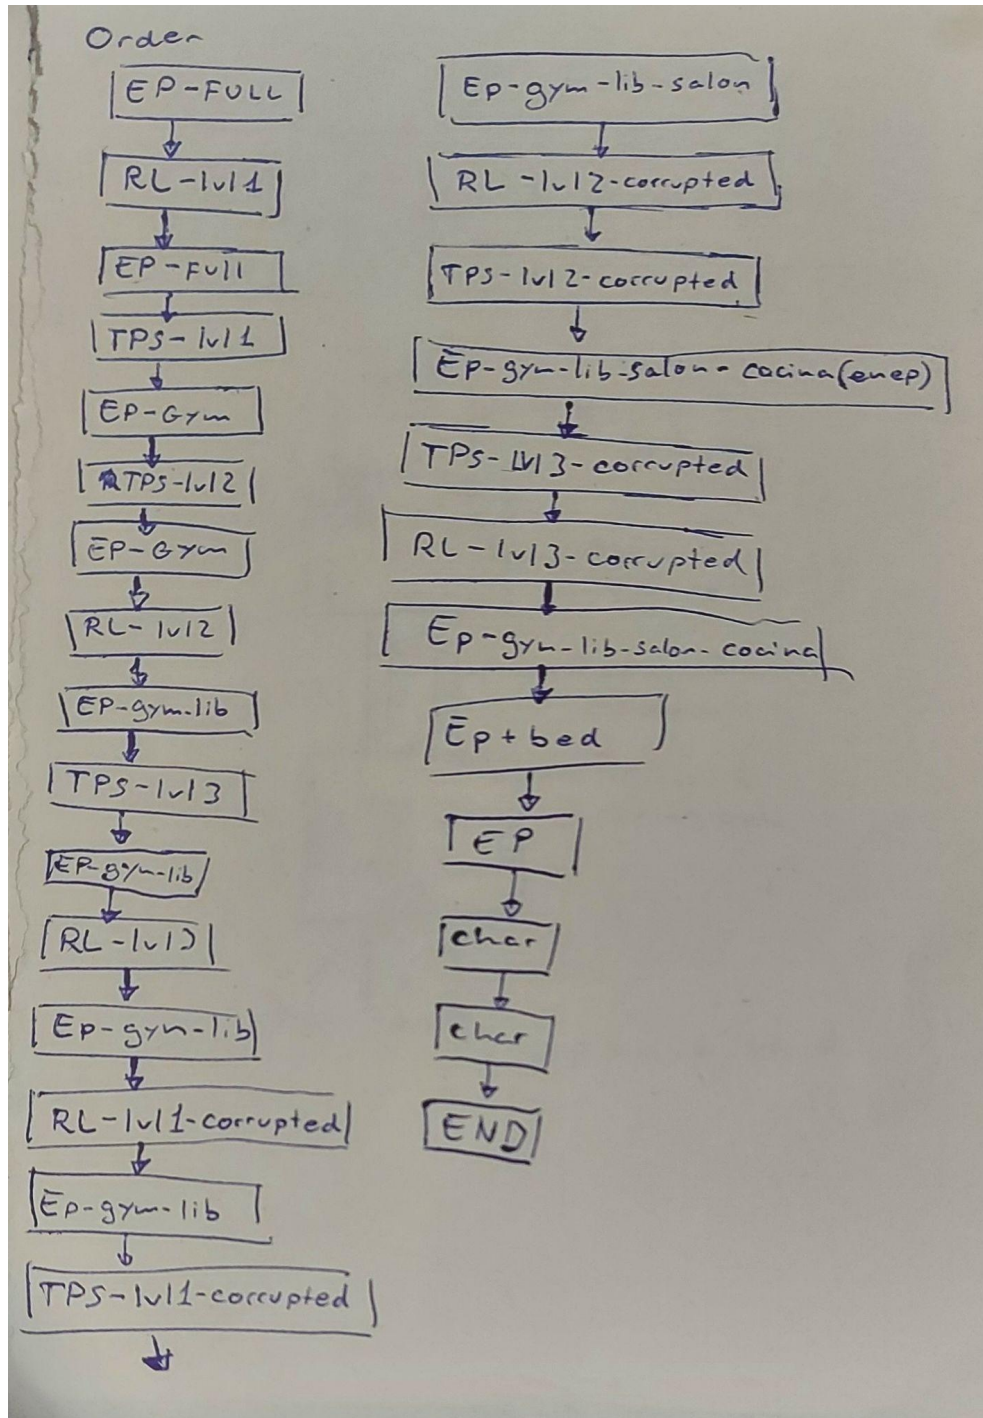 Order
EP-FULL
RL-lvl1
EP-Full
TPS-lvl1
EP-Gym
TPS-lvl2
EP-Gym
RL-lvl2
EP-gym-lib
TPS-lvl3
EP-gym-lib
RL-lvl3
Ep-gym-lib
RL-lvl1-corrupted
Ep-gym-lib
TPS-lvl1-corrupted
Ep-gym-lib-salon
RL-lvl2-corrupted
TPS-lvl2-corrupted
Ep-gym-lib-salon-cocina(enep)
TPS-lvl3-corrupted
RL-lvl3-corrupted
Ep-gym-lib-salon-cocina
Ep+bed
EP
char
char
END